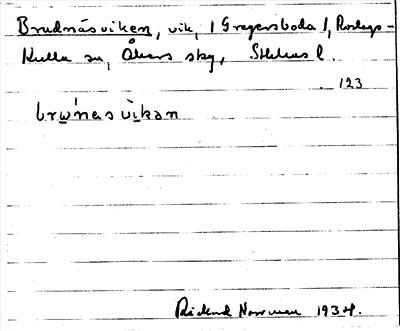 Brudnäsviken, vik, 1 Gregersboda 1, Roslags-
Kulla sn, Åkers sky, Sthlms l.
123
brɯ̀nasvìkan
Rickard Norrman 1934.